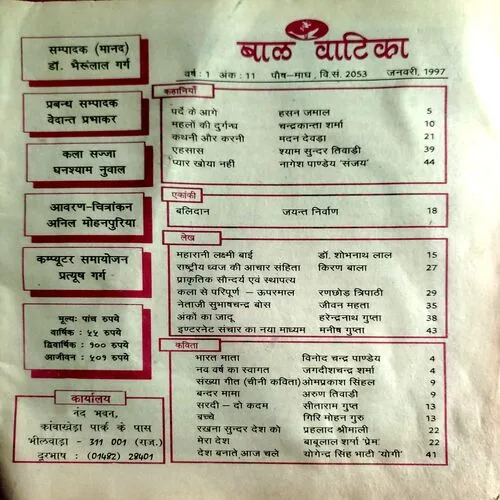 बाल वाटिका
वर्ष : 1 अंक : 11 पौष-माघ, वि.सं. 2053 जनवरी, 1997
सम्पादक (मानद)
डॉ. भैरूंलाल गर्ग
प्रबन्ध सम्पादक
वेदान्त प्रभाकर
कला सज्जा
घनश्याम नुवाल
आवरण-चित्रांकन
अनिल मोहनपुरिया
कम्प्यूटर समायोजन
प्रत्यूष गर्ग
मूल्य: पांच रुपये
वार्षिक : ५५ रुपये
द्विवार्षिक : १०० रुपये
आजीवन : ५०१ रुपये
कार्यालय
नंद भवन,
कांवाखेड़ा पार्क के पास
भीलवाड़ा - 311 001 (राज.)
दूरभाष : (01482) 28401
कहानियाँ
पर्दे के आगे हसन जमाल 5
महलों की दुर्गन्ध चन्द्रकान्ता शर्मा 10
कथनी और करनी मदन देवड़ा 21
एहसास श्याम सुन्दर तिवाड़ी 39
प्यार खोया नहीं नागेश पाण्डेय 'संजय' 44
एकांकी
बलिदान जयन्त निर्वाण 18
लेख
महारानी लक्ष्मी बाई डॉ. शोभनाथ लाल 15
राष्ट्रीय ध्वज की आचार संहिता किरण बाला 27
प्राकृतिक सौन्दर्य एवं स्थापत्य
कला से परिपूर्ण - ऊपरमाल रणछोड़ त्रिपाठी 29
नेताजी सुभाषचन्द्र बोस जीवन महता 35
अंकों का जादू हरेन्द्रनाथ गुप्ता 38
इण्टरनेट संचार का नया माध्यम मनीष गुप्ता 43
कविता
भारत माता विनोद चन्द्र पाण्डेय 4
नव वर्ष का स्वागत जगदीशचन्द्र शर्मा 4
संख्या गीत (चीनी कविता) ओमप्रकाश सिंहल 9
बन्दर मामा अरुण तिवाड़ी 9
सरदी - दो कदम सीताराम गुप्त 13
बच्चे गिरि मोहन गुरु 13
रखना सुन्दर देश को प्रहलाद श्रीमाली 22
मेरा देश बाबूलाल शर्मा 'प्रेम' 22
देश बनाते आज चले योगेन्द्र सिंह भाटी 'योगी' 41